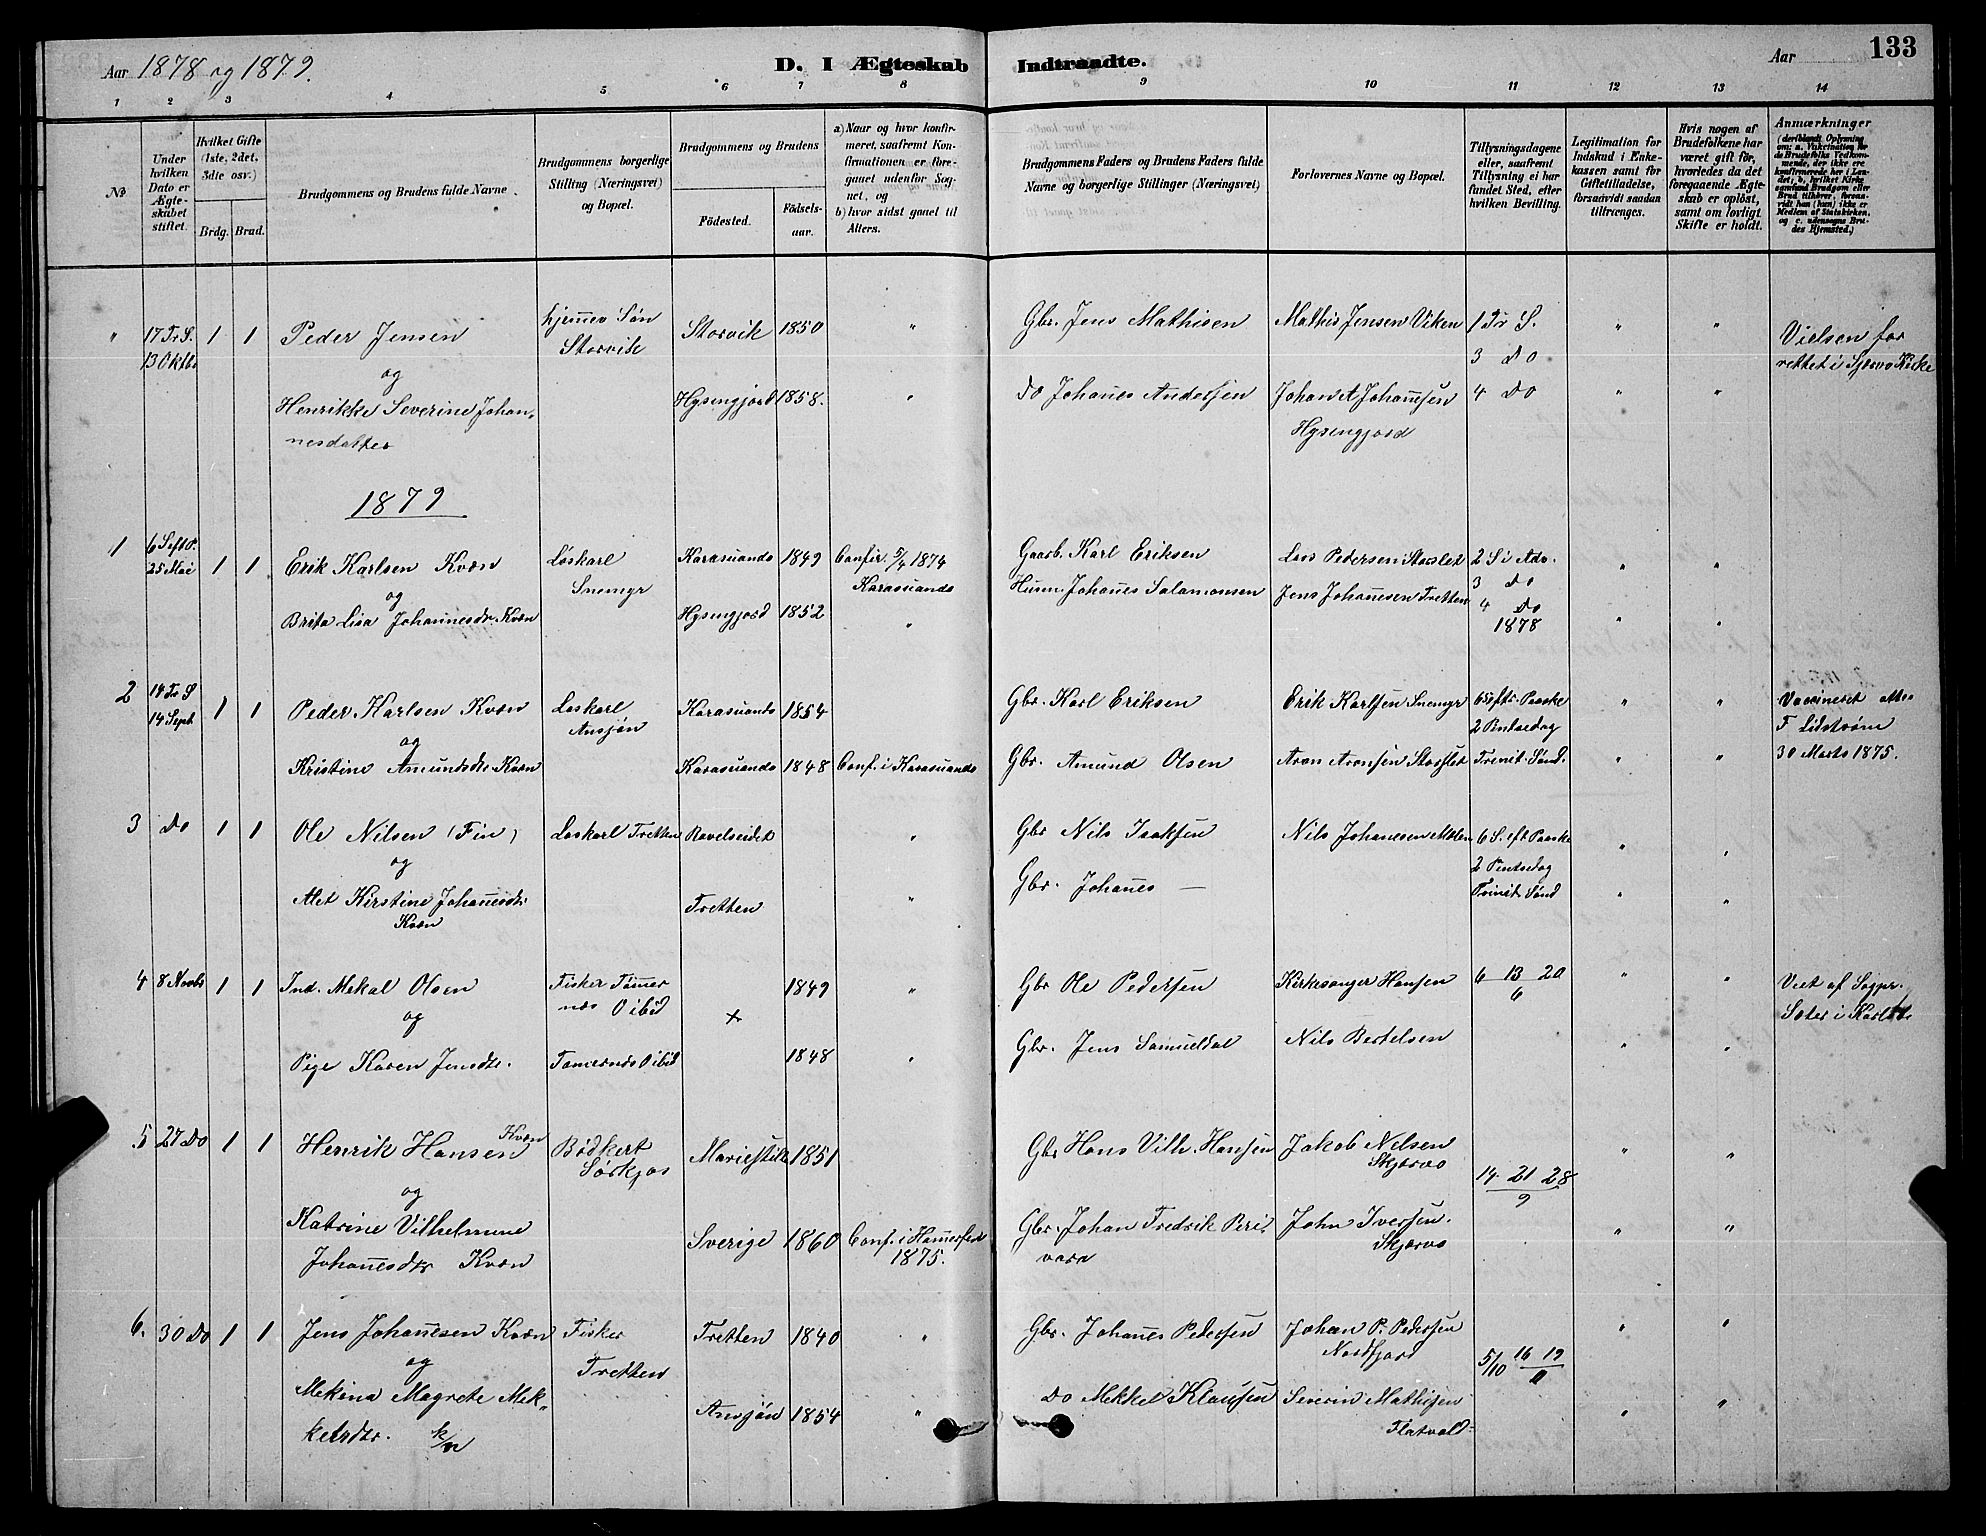 Aar 1878 og 1879.
D. I Ægteskab Indtraadte.
Aar
133
1 2 3 4 5 6 7 8 9 10 11 12 13 14
No
Under hvilken Dato er Ægteskabet stiftet.
Hvilket Gifte (1ste, 2det, 3die osv.)
Brdg. Brud.
Brudgommens og Brudens fulde Navne.
Brudgommens borgerlige Stilling (Næringsvei) og Bopæl.
Brudgommens og Brudens
Födested. Födselsaar.
a) Naar og hvor konfirmeret, saafremt Konfirmationen er foregaaet udenfor Sognet, og
b) hvor sidst gaaet til Alters.
Brudgommens Faders og Brudens Faders fulde Navne og borgerlige Stillinger (Næringsvei)
Forlovernes Navne og Bopæl.
Tillysningsdagene eller, saafremt Tillysning ei har fundet Sted, efter hvilken Bevilling.
Legitimation for Indskud i Enkekassen samt for Giftetilladelse, forsaavidt saadan tiltrænges.
Hvis nogen af Brudefolkene har været gift för, hvorledes da det foregaaende Ægteskab er oplöst, samt om lovligt Skifte er holdt.
Anmærkninger
(deriblandt Oplysning om: a. Vaksination for de Brudefolks Vedkommende, der ikke ere konfirmerede her i Landet; b. hvilket Kirkesamfund Brudgom eller Brud tilhører, forsaavidt han (hun) ikke er Medlem af Statskirken, og c. udensogns Brudes Hjemsted.)
" 17 Tr. S. 1 1 Peder Jensen hjemev Søn Storvik 1850 " Gbr. Jens Mathisen Mathis Jensen Viken 1 Tr S. " " Vielsen for
13 Oktbr Storvik 3 Do rettet i Skjervø Kirke
og
Henrikke Severine Johan- Hysingjord 1858. " Do Johanes Andersen Johan A Johannesen 4 Do " "
nesdatter Hysingjord
1879
1 6 S eft P. 1 1 Erik Karlsen Kvæn Løskarl Karasuando 1849 Confir 5/4 1874 Gaarb. Karl Eriksen Lars Pedersen Storslet 2 S i Adv. " "
25 Mai og Snemyr Karasuando 3 Do
Brita Lisa Johannesdr. Kvæn Hysingjord 1852 " Husm. Johanes Salamonsen Jens Johanesen Tretten 4 Do " "
1878
2 14 Tr S 1 1 Peder Karlsen Kvæn Løskarl Karasuando 1854 Gbr. Karl Eriksen Erik Karlsen Snemyr 6 S eftr. Paaske " " Vaccineret
14 Sept og Ansjøn 2 Pintsedag F Lidstrøm
Kristine Amundsdr. Kvæn Karasuando 1848 Conf. i Karasuando Gbr. Amund Olsen Aron Aronsen Storslet Trinit. Sønd. " " 30 Marts 1875.
3 Do 1 1 Ole Nilsen (Fin) Løskarl Tretten Ravelseidet " Gbr Nils Isaksen Nils Johanesen 6 S. eft Paaske " "
og 2 Pintsedag
Alet Kirstine Johanesdr. Tretten " Gbr. Johanes — Trinit. Sønd " "
Kvæn
4 8 Novbr 1 1 Ind. Mekal Olsen Fisker 1849 " Gbr Ole Pedersen Kirkesanger Hansen 6 13 20 " " Viet af Sogpr.
og × 6
Pige Karen Jensdtr. 1848 " Gbr. Jens Samueldal Nils Bertelsen " "
5 27 Do 1 1 Henrik Hansen Kvæn Bødkert 1851 Gbr Hans Vilh. Hansen Jakob Nilsen " "
og Sørkjos Skjervø 14 21 28
9
Katrine Vilhelmine Sverige 1860 Conf. i Hamerfest Gbr. Johan Fredrik Peri- John Iversen. " "
Johanesdtr Kvæn 1875. vara Skjervø
6. 30 Do 1 1 Jens Johanesen Kvæn Fisker Tretten 1840 " Gbr. Johanes Pedersen Johan P. Pedersen " "
og Tretten Nordfjord 5/10 16 19
Mekina Magrete Mek- Ansjøn 1854 " Do Mekkel Klausen Severin Mathisen " "
Flatvold